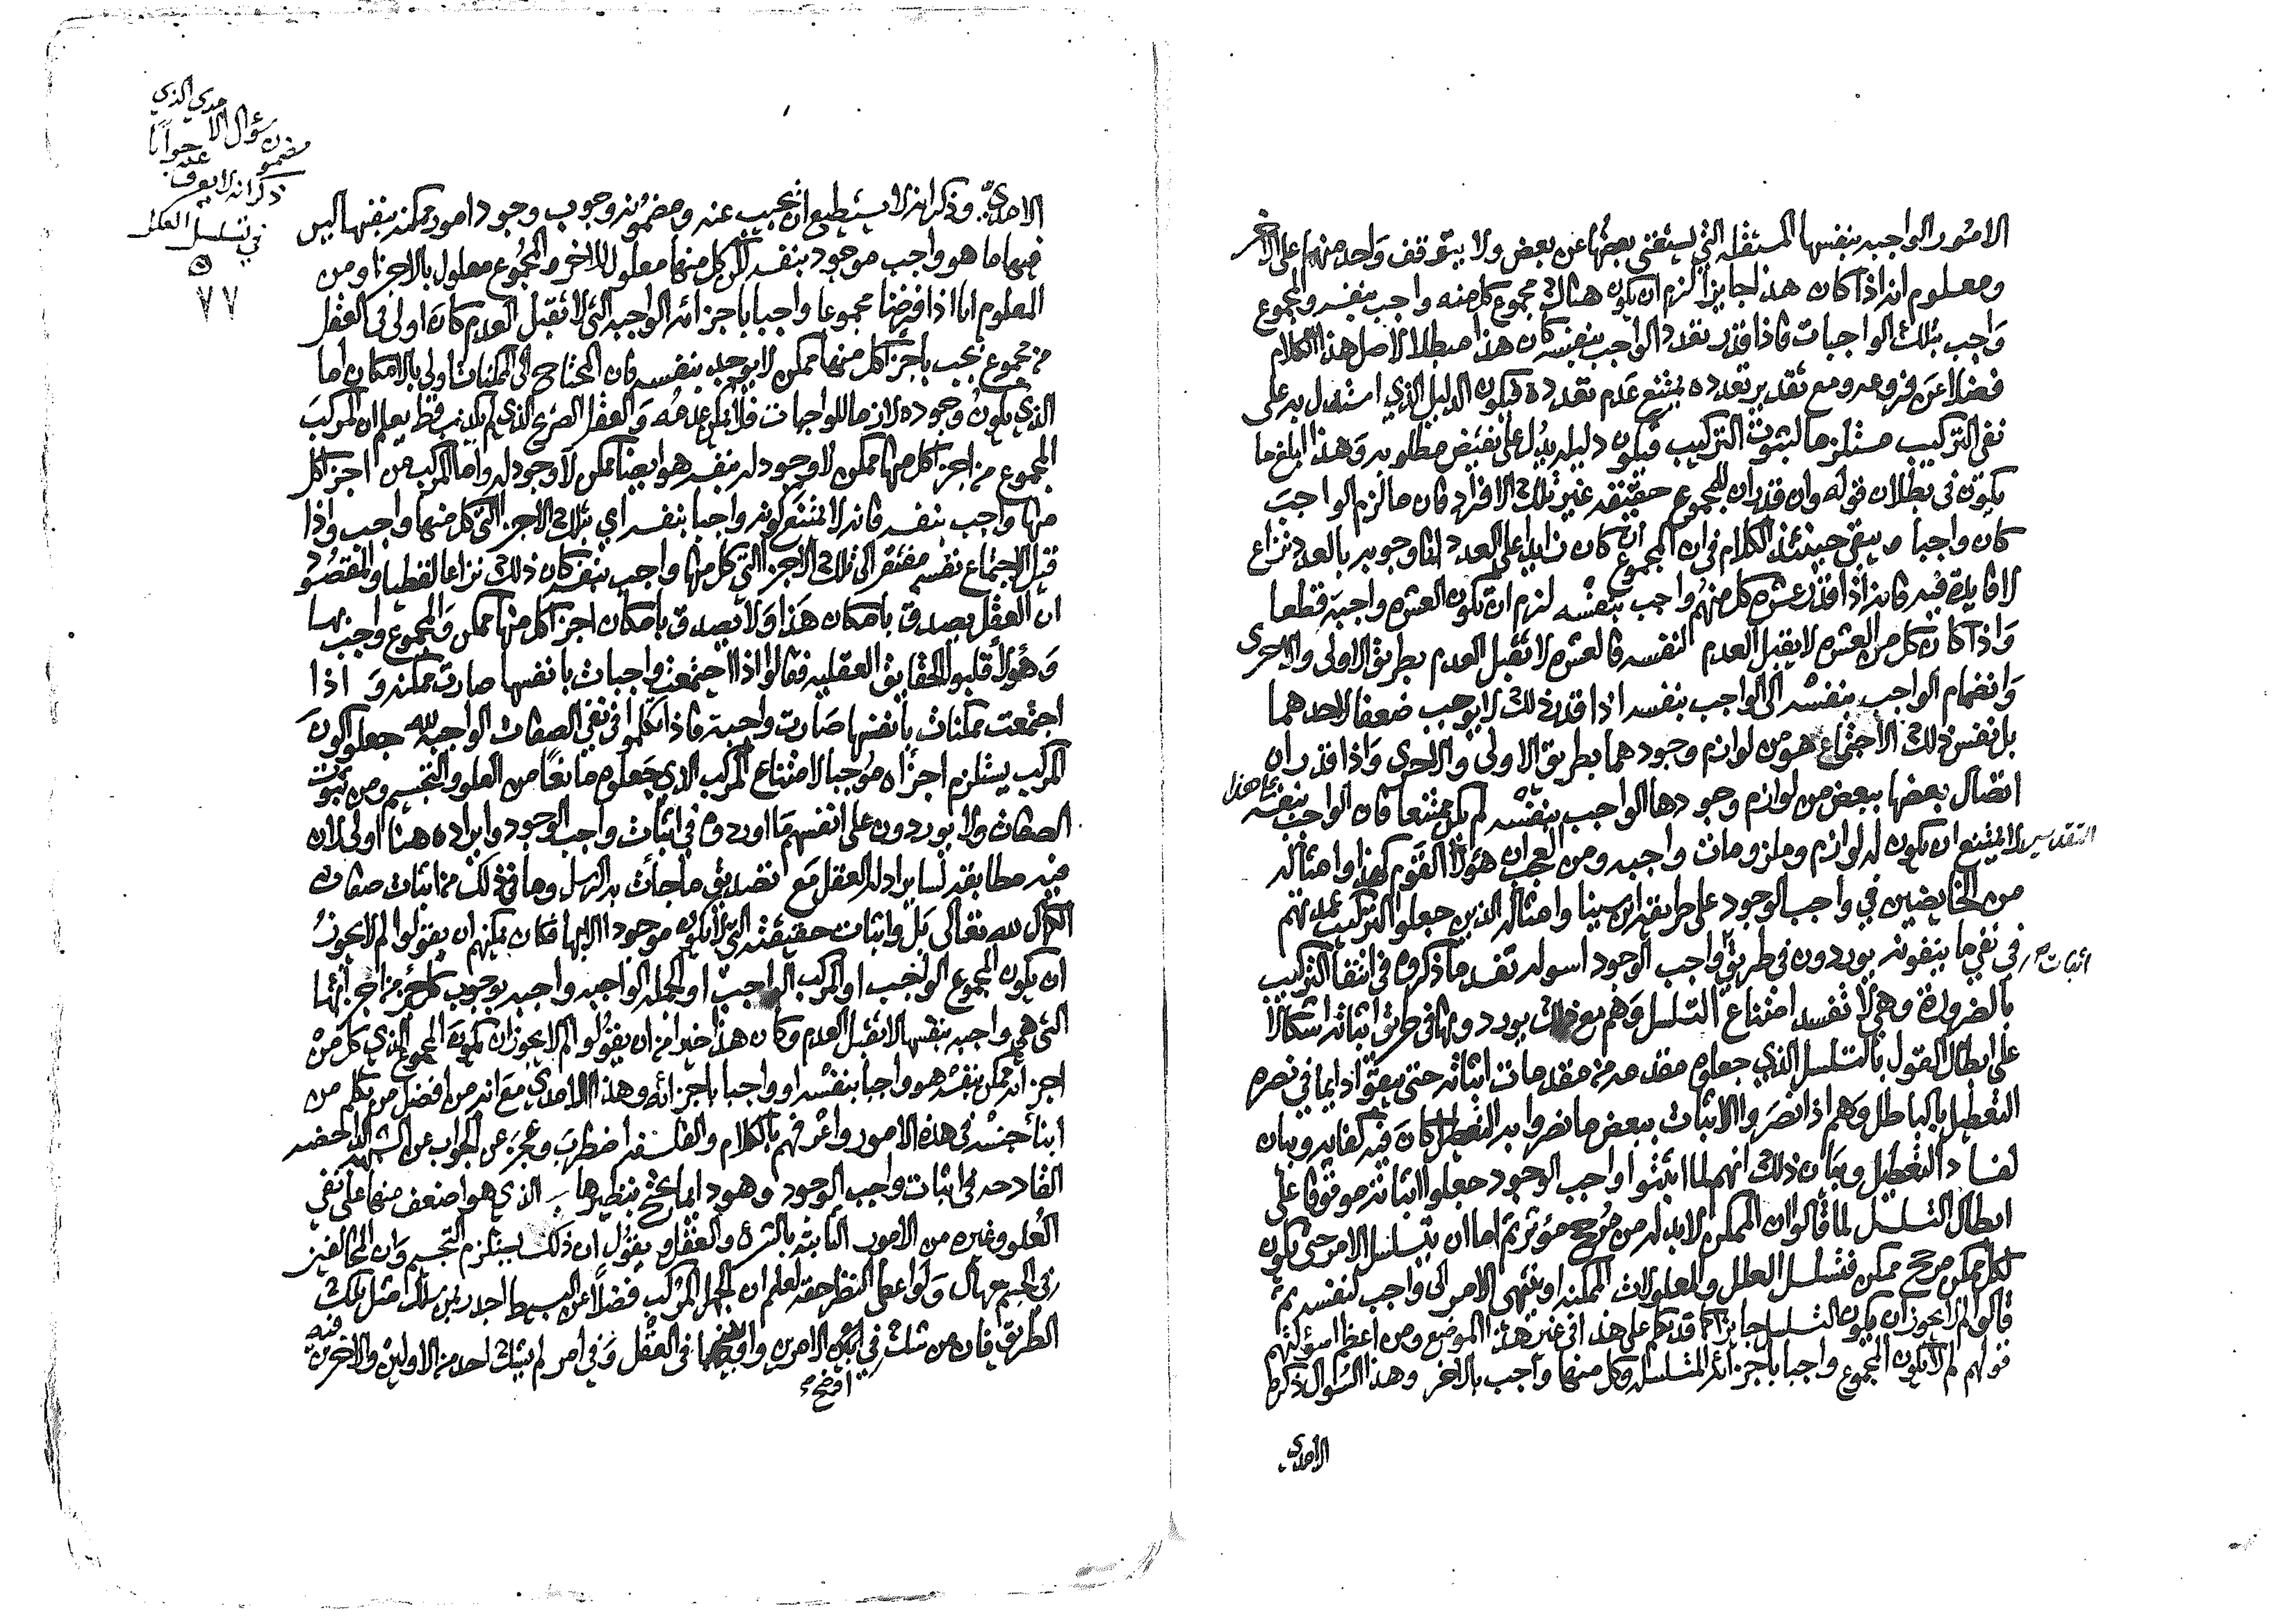 الامور الواجبه بنفسها المستقله التي يستغني بعضها عن بعض ولا يتوقف واحد منها على الاخر
ومعلوم انه اذا كان هذا جايزا لزم ان يكون هناك مجموع كل منه واجب بنفسه والمجموع
واجب بتلك الواجبات فاذا قدر تعدد الواجب بنفسه كان هذا مبطلا لاصل هذا الكلام
فضلا عن فروعه ومع تقدير تعدده يمتنع عدم تعدده فيكون الدليل الذي استدل به على
نفي التركيب مستلزما لثبوت التركيب فيكون دليله يدل على نقيض مطلوبه وهذا ابلغ ما
يكون في بطلان قوله وان قدر ان للمجموع حقيقه غير تلك الافراد فان ما لزم الواجب
كان واجبا ويبقى حينئذ الكلام في ان المجموع ان كان زايدا على العدد انا وجوبه بالعدد نزاع
لا فايدة فيه فانه اذا قدر عشره كل منهم واجب بنفسه لزم ان تكون العشره واجبة قطعا
واذا كان كل من العشره لا يقبل العدم لنفسه فالعشره لا تقبل العدم بطريق الاولى والاحرى
وانضمام الواجب بنفسه الى الواجب بنفسه اذا قدر ذلك لا يوجب ضعفا لاحدهما
بل نفس ذلك الاجتماع هو من لوازم وجودهما بطريق الاولى والاحرى واذا قدر ان
اتصال بعضها ببعض من لوازم وجودها الواجب بنفسه لم يكن ممتنعا فان الواجب بنفسه على هذا
التقدير لا يمتنع ان يكون له لوازم وملزومات واجبه ومن العجب ان هؤلا القوم كهذا وامثاله
من الخايضين في واجب الوجود على طريقة ابن سينا وامثاله الذين جعلوا التركيب عمدتهم
في نفي ما ينفونه يوردون في طريق اثبات واجب الوجود اسوله تفسد ما ذكروه في انتفا التركيب
بالضرورة وهي لا تفسد امتناع التسلسل وهم مع ذلك يوردونها في طريق اثباته اشكالا
على ابطال القول بالتسلسل الذي جعلوه مقدمه من مقدمات اثباته حتى يبقوا دايما في نصره
التعطيل بالباطل وهم اذا نصروا الاثبات ببعض ما نصروا به التعطيل كان فيه كفايه وبيان
لفساد التعطيل وبيان ذلك انهم لما اثبتوا واجب الوجود جعلوا اثباته موقوفا على
ابطال التسلسل لما قالوا ان الممكن لا بد له من مرجح مؤثر ثم اما ان يتسلسل الامر حتى يكون
لكل ممكن مرجح ممكن فتسلسل العلل والمعلولات الممكنه او ينتهي الامر الى واجب لنفسه ثم
قالوا لم لا يجوز ان يكون التسلسل جايزا كما قد تكلم على هذا في غير هذا الموضع ومن اعظم اسولتهم
قولهم لم لا يكون المجموع واجبا باجزائه المتسلسله وكل منها واجب بالاخر وهذا السوال ذكره
الآمدي
الامدي وذكر انه لا يستطيع ان يجيب عنه ومضمونه وجوب وجود امور ممكنه بنفسها ليس
فيها ما هو واجب موجود بنفسه لكن كل منها معلول للاخر والمجموع معلول بالاجزا ومن
المعلوم انا اذا فرضنا مجموعا واجبا باجزائه الواجبه التي لا تقبل العدم كان اولى في العقل
من مجموع يجب باجزا كل منها ممكن لا يوجد بنفسه فان المحتاج الى الممكنات اولى بالامكان اما
الذي يكون وجوده لازما للواجبات فلا يمكن عدمه والعقل الصريح الذي لم يكذب قط يعلم ان المركب
المجموع من اجزا كل منها ممكن لا وجود له بنفسه هو ايضا ممكن لا وجود له واما المركب من اجزا كل
منها واجب بنفسه فانه لا يمتنع كونه واجبا بنفسه اي بتلك الاجزا التي كل منها واجب واذا
قيل الاجتماع نفسه مفتقر الى تلك الاجزا التي كل منها واجب بنفسه كان ذلك نزاعا لفظيا والمقصود
ان العقل يصدق بامكان هذا ولا يصدق بامكان اجزا كل منها ممكن والمجموع واجب بها
وهؤلا قلبوا الحقايق العقليه فقالوا اذا اجتمعت واجبات بانفسها صارت ممكنه واذا
اجتمعت ممكنات بانفسها صارت واجبة فاذا تكلموا في نفي الصفات الواجبه لله جعلوا كون
المركب يستلزم اجزاه موجبا لامتناع المركب الذي جعلوه مانعا من العلو والتجسيم ومن ثبوت
الصفات ولا يوردون على انفسهم ما اوردوه في اثبات واجب الوجود وايراده هنا اولى لان
فيه مطابقه لساير ادله العقل مع تصديق ما جأت به الرسل وما في ذلك من اثبات صفات
الكمال لله تعالى بل واثبات حقيقته التي لا يكون موجودا الا بها فكان يمكنهم ان يقولوا لم لا يجوز
ان يكون المجموع الواجب او المركب الواجب او الجمله الواجبه واجبه بوجوب كل جز من اجزائها
التي هي واجبه بنفسها لا تقبل العدم وكان هذا خيرا من ان يقولوا لم لا يجوز ان يكون المجموع الذي كل من
اجزائه ممكن بنفسه هو واجبا بنفسه او واجبا باجزائه وهذا الامدي مع انه من افضل من تكلم من
ابنأ جنسه في هذه الامور واعرفهم بالكلام والفلسفه اضطرب وعجز عن الجواب عن الشبهه الداحضه
القادحه في اثبات واجب الوجود وهو دايما يحتج بنظيرها الذي هو اضعف منها على نفي
العلو وغيره من الامور الثابته بالشرع والعقل ويقول ان ذلك يستلزم التجسيم وان المخالفين
في الجسم جهال ولو اعطى النظر حقه لعلم ان الجهل المركب فضلا عن البسيط اجدر بمن سلك مثل تلك
الطريق فان من شك في ابين الامرين واوضحهما في العقل وفي امر لم يشك احد من الاولين والاخرين فيه
اوضح
سؤال الآمدي الذي
مضمونه
ذكر انه لا يعرف عنه جوابا
في تسلسل العلل
٧٧